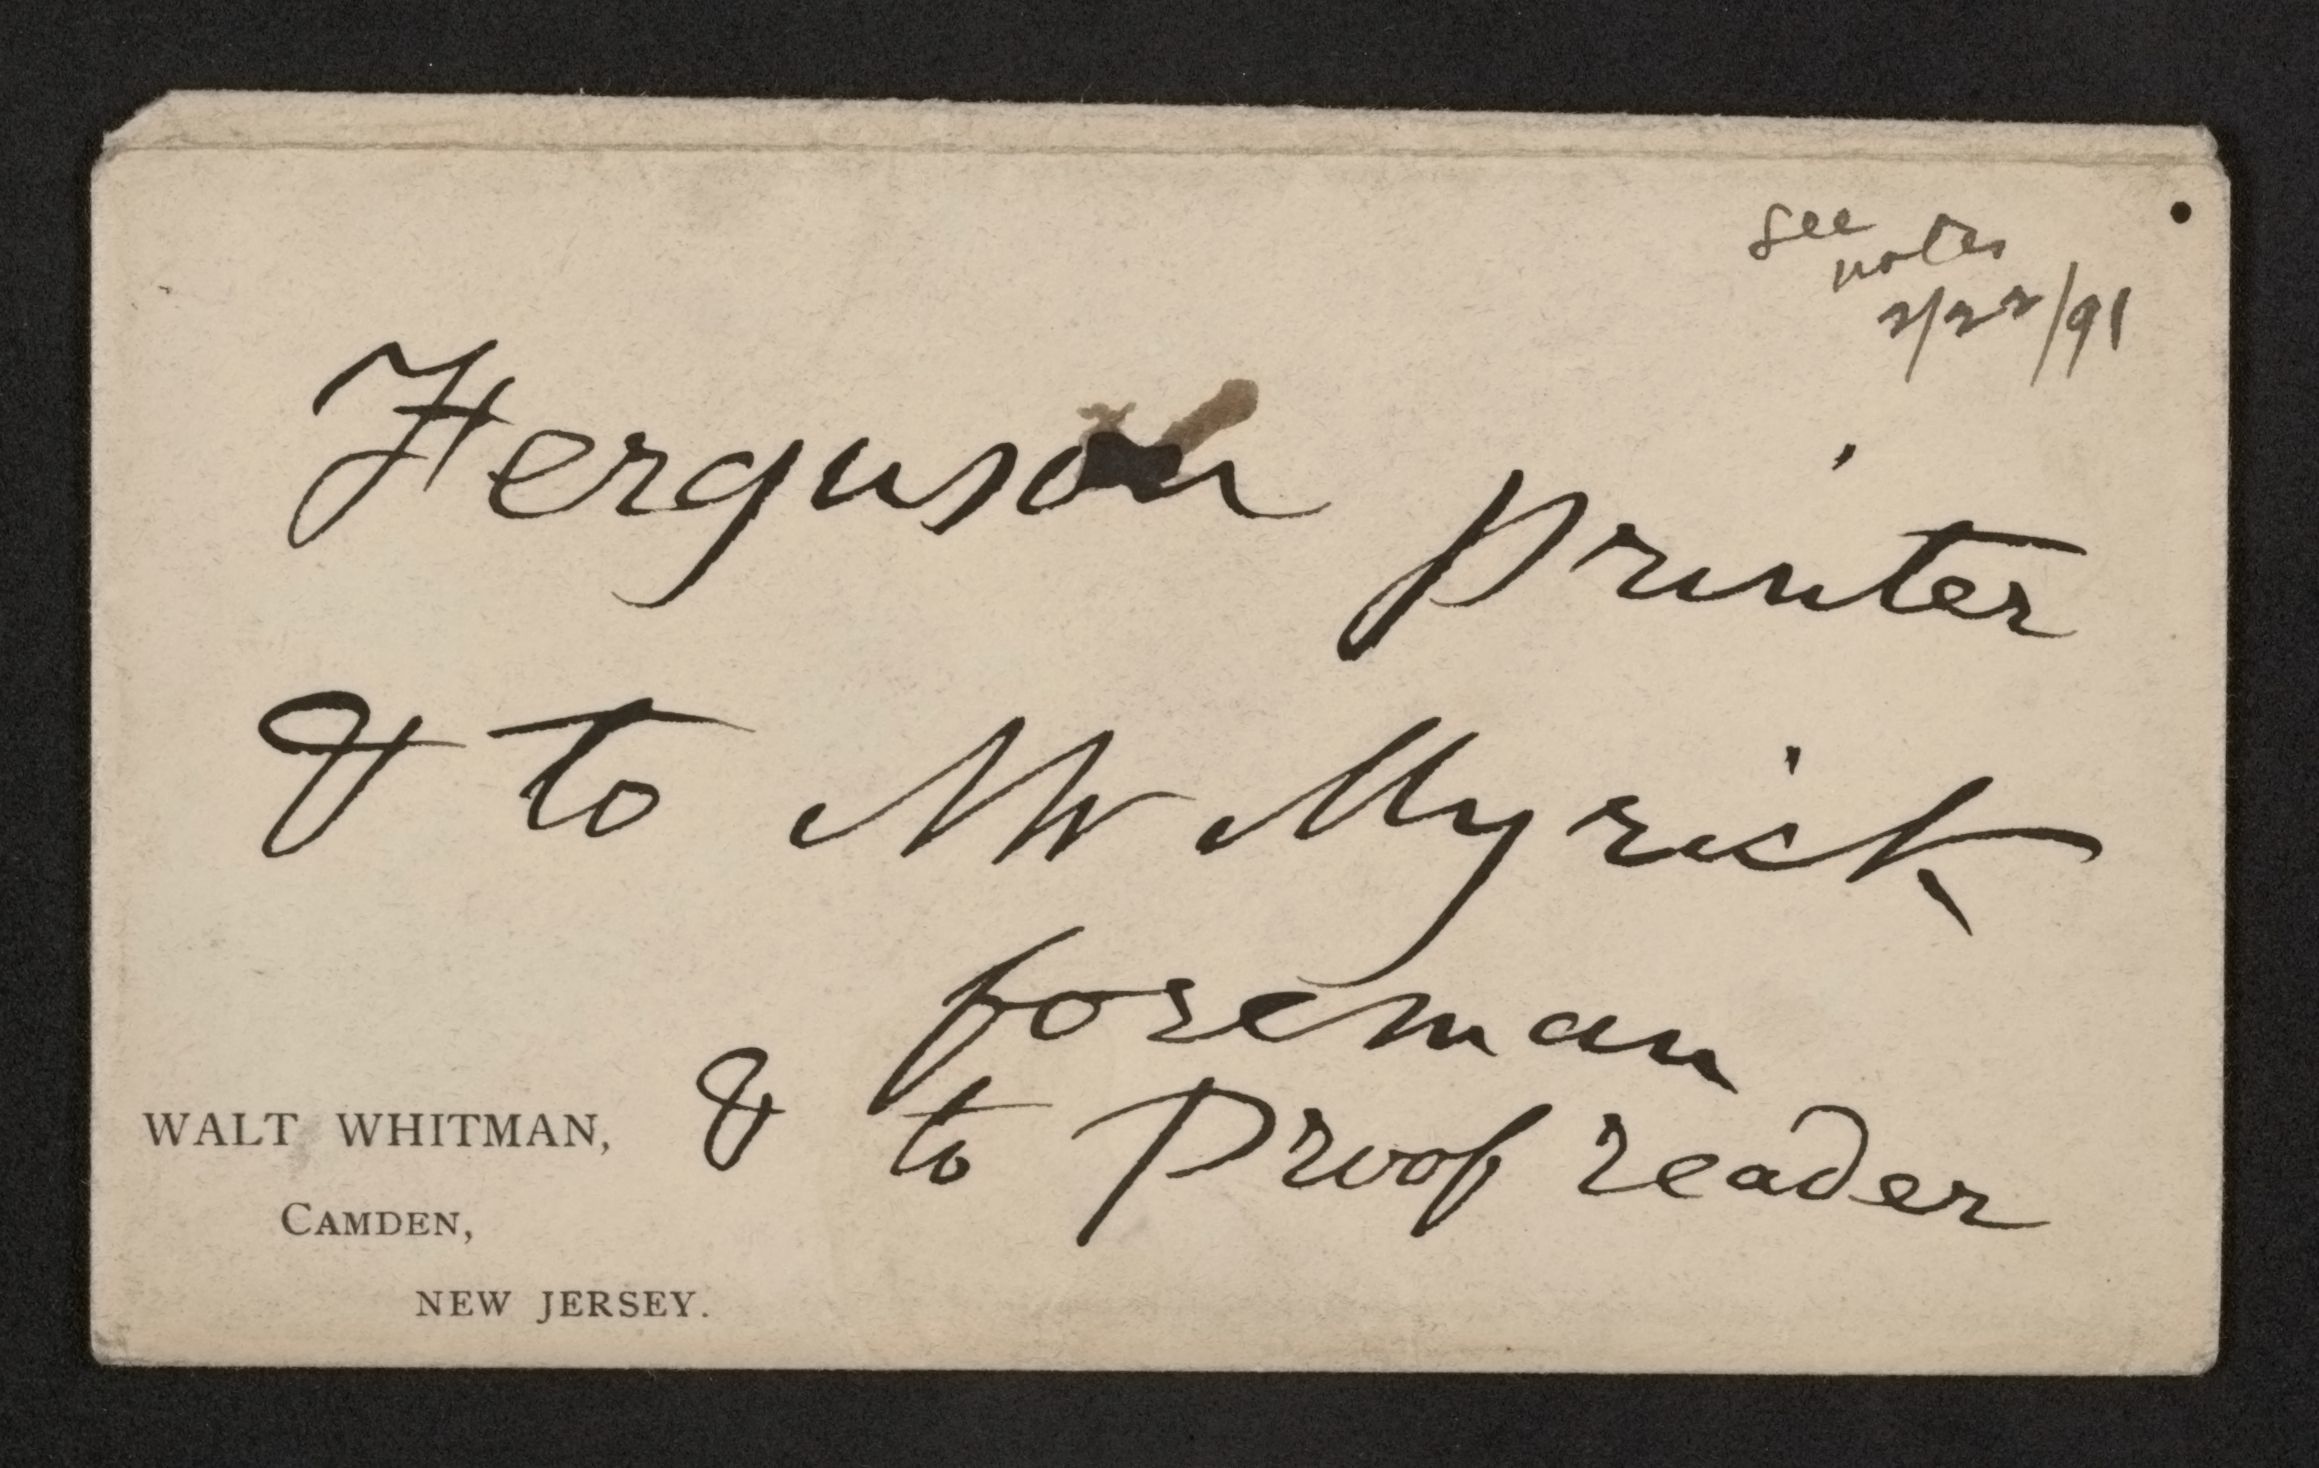 see
notes
2/22/91
Ferguson printer
& to Mr Myrick
foreman
& to Proof reader
WALT WHITMAN,
CAMDEN,
NEW JERSEY.